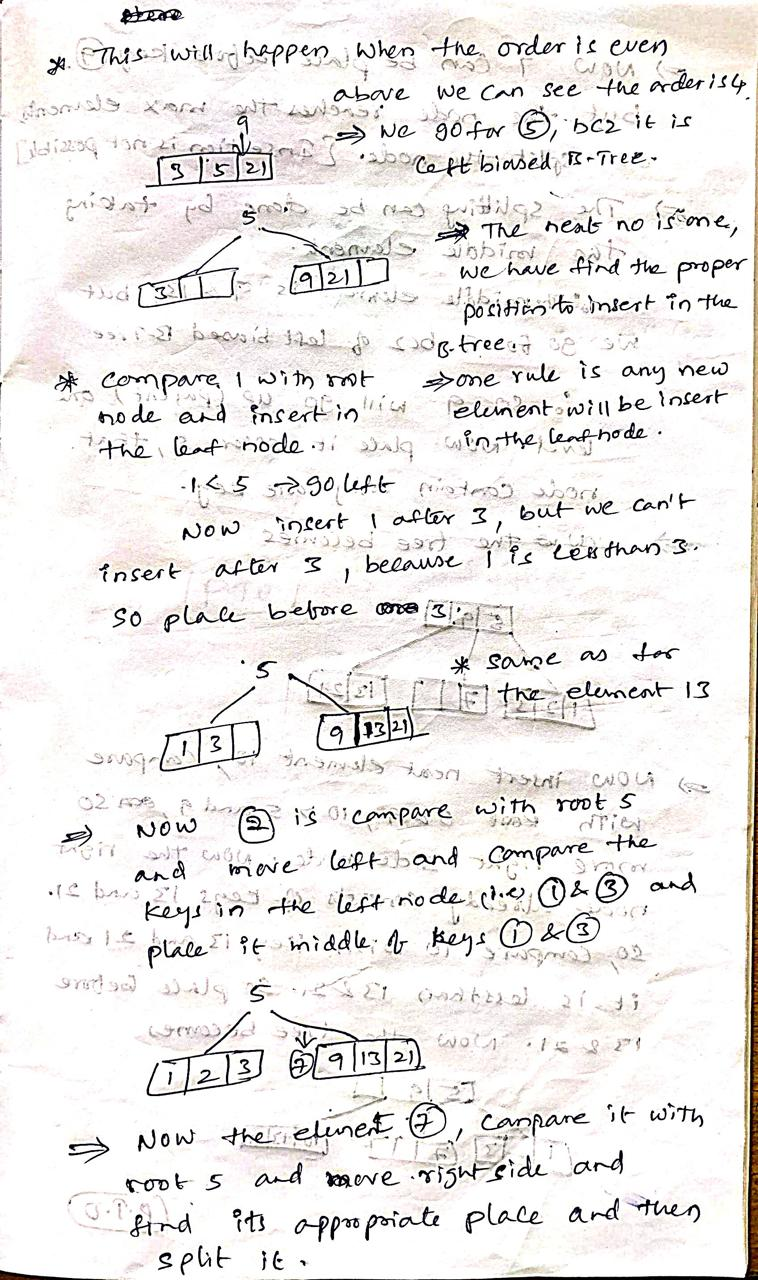 * This will happen when the order is even
above we can see the order is 4.
9
3 5 21
⇒ We go for ⑤, bcz it is
left biased B-Tree.
5
3
9 21
⇒ The next no is one,
we have find the proper
position to insert in the
B-tree.
* Compare 1 with root
node and insert in
the leaf node.
⇒ one rule is any new
element will be insert
in the leaf node.
1 < 5 → go left
Now insert 1 after 3, but we can't
insert after 3, because 1 is less than 3.
So place before 3.
5
1 3
9 13 21
* same as for
the element 13
⇒ Now ② is compare with root 5
and move left and compare the
keys in the left node (i.e) ① & ③ and
place it middle of keys ① & ③
5
1 2 3
⑦ 9 13 21
⇒ Now the element ⑦, compare it with
root 5 and move right side and
find its appropriate place and then
split it.